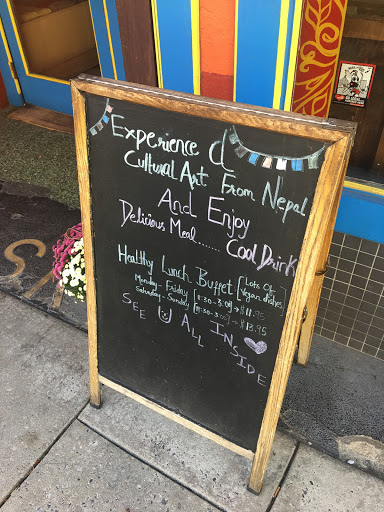 Experience d
Cultural Art From Nepal
And Enjoy
Delicious Meal....... Cool Drink
Healthy Lunch Buffet
Monday - Friday [11:30 - 3:00] → $11.95
Saturday - Sunday [11:30 - 3:00] → $13.95
Lots Of
Vegan dishes
SEE U ALL INSIDE